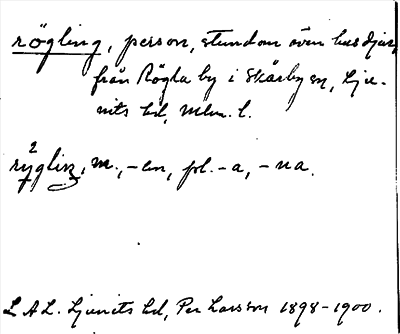 rögling, person, stundom även husdjur,
från Rögla by i Skårby sn, Lju-
nits hd, Mlm. l.
2
rÿgliŋ, m., -en, pl. -a, -na.
L A L. Ljunits hd, Per Larsson 1898-1900.